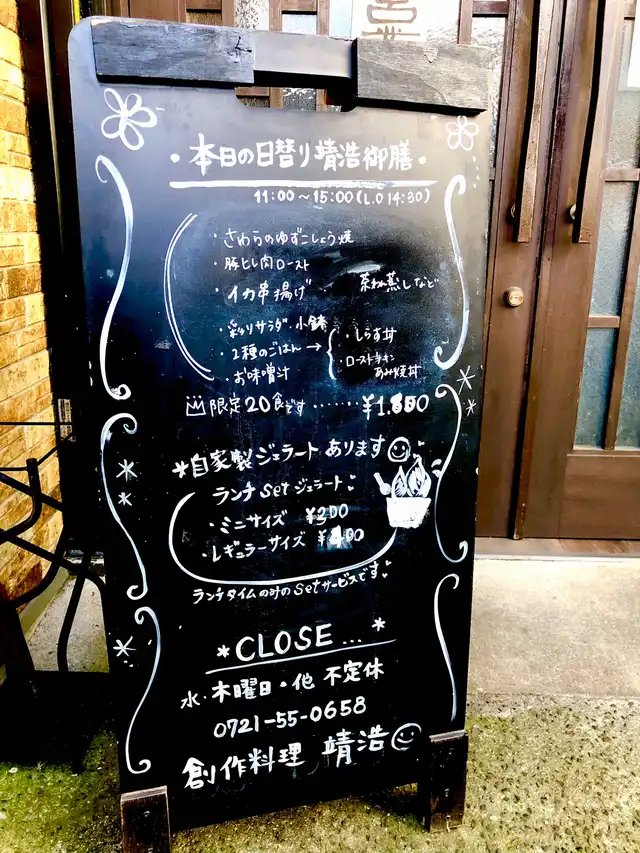 ・本日の日替り靖浩御膳・
11:00〜15:00(L.O 14:30)
・さわらのゆずこしょう焼
・豚ヒレ肉ロースト
・イカ串揚げ 茶わん蒸しなど
・彩りサラダ・小鉢
・2種のごはん→
・お味噌汁
・しらす丼
・ローストチキン
あみ焼丼
限定20食です……
*自家製ジェラートあります
ランチSetジェラート
・ミニサイズ ¥200
・レギュラーサイズ
ランチタイムのみのSetサービスです
*CLOSE...*
水・木曜日・他 不定休
0721-55-0658
創作料理 靖浩